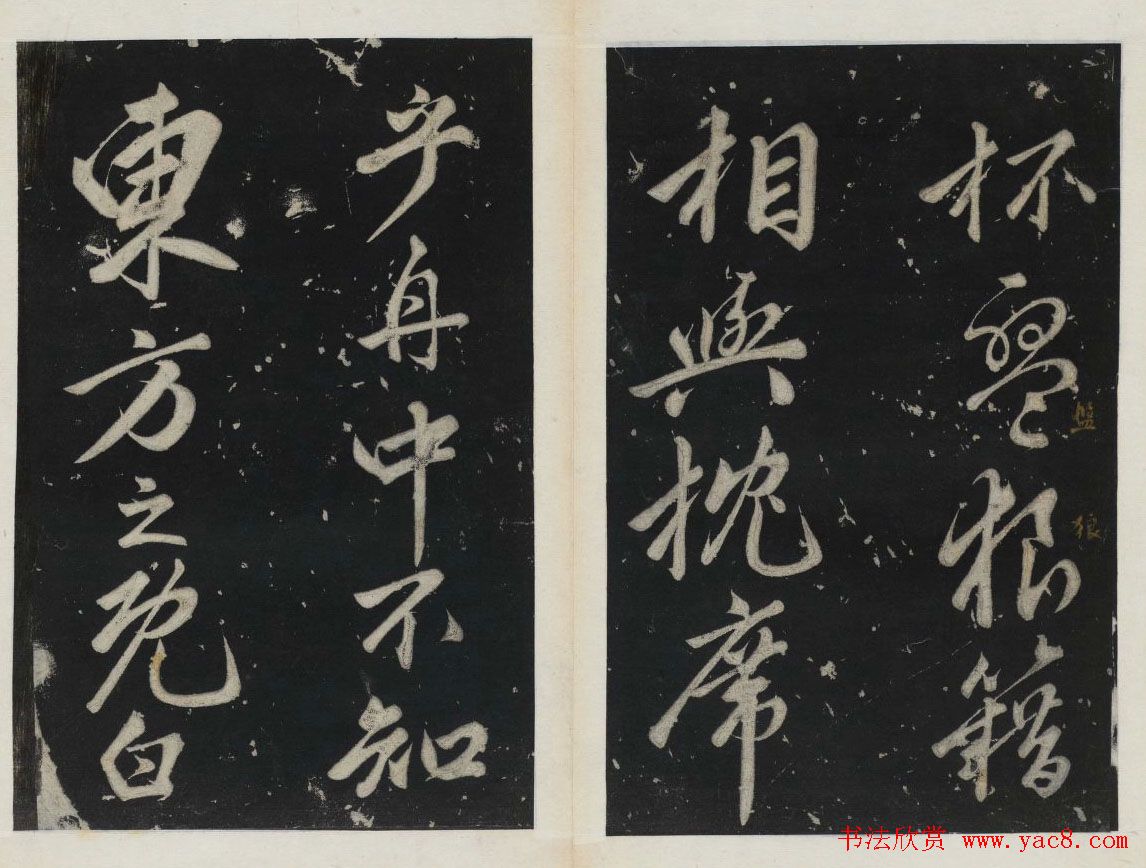 杯盤狼籍
狼
相與枕席
乎舟中不知
東方之既白
书法欣赏 www.yac8.com